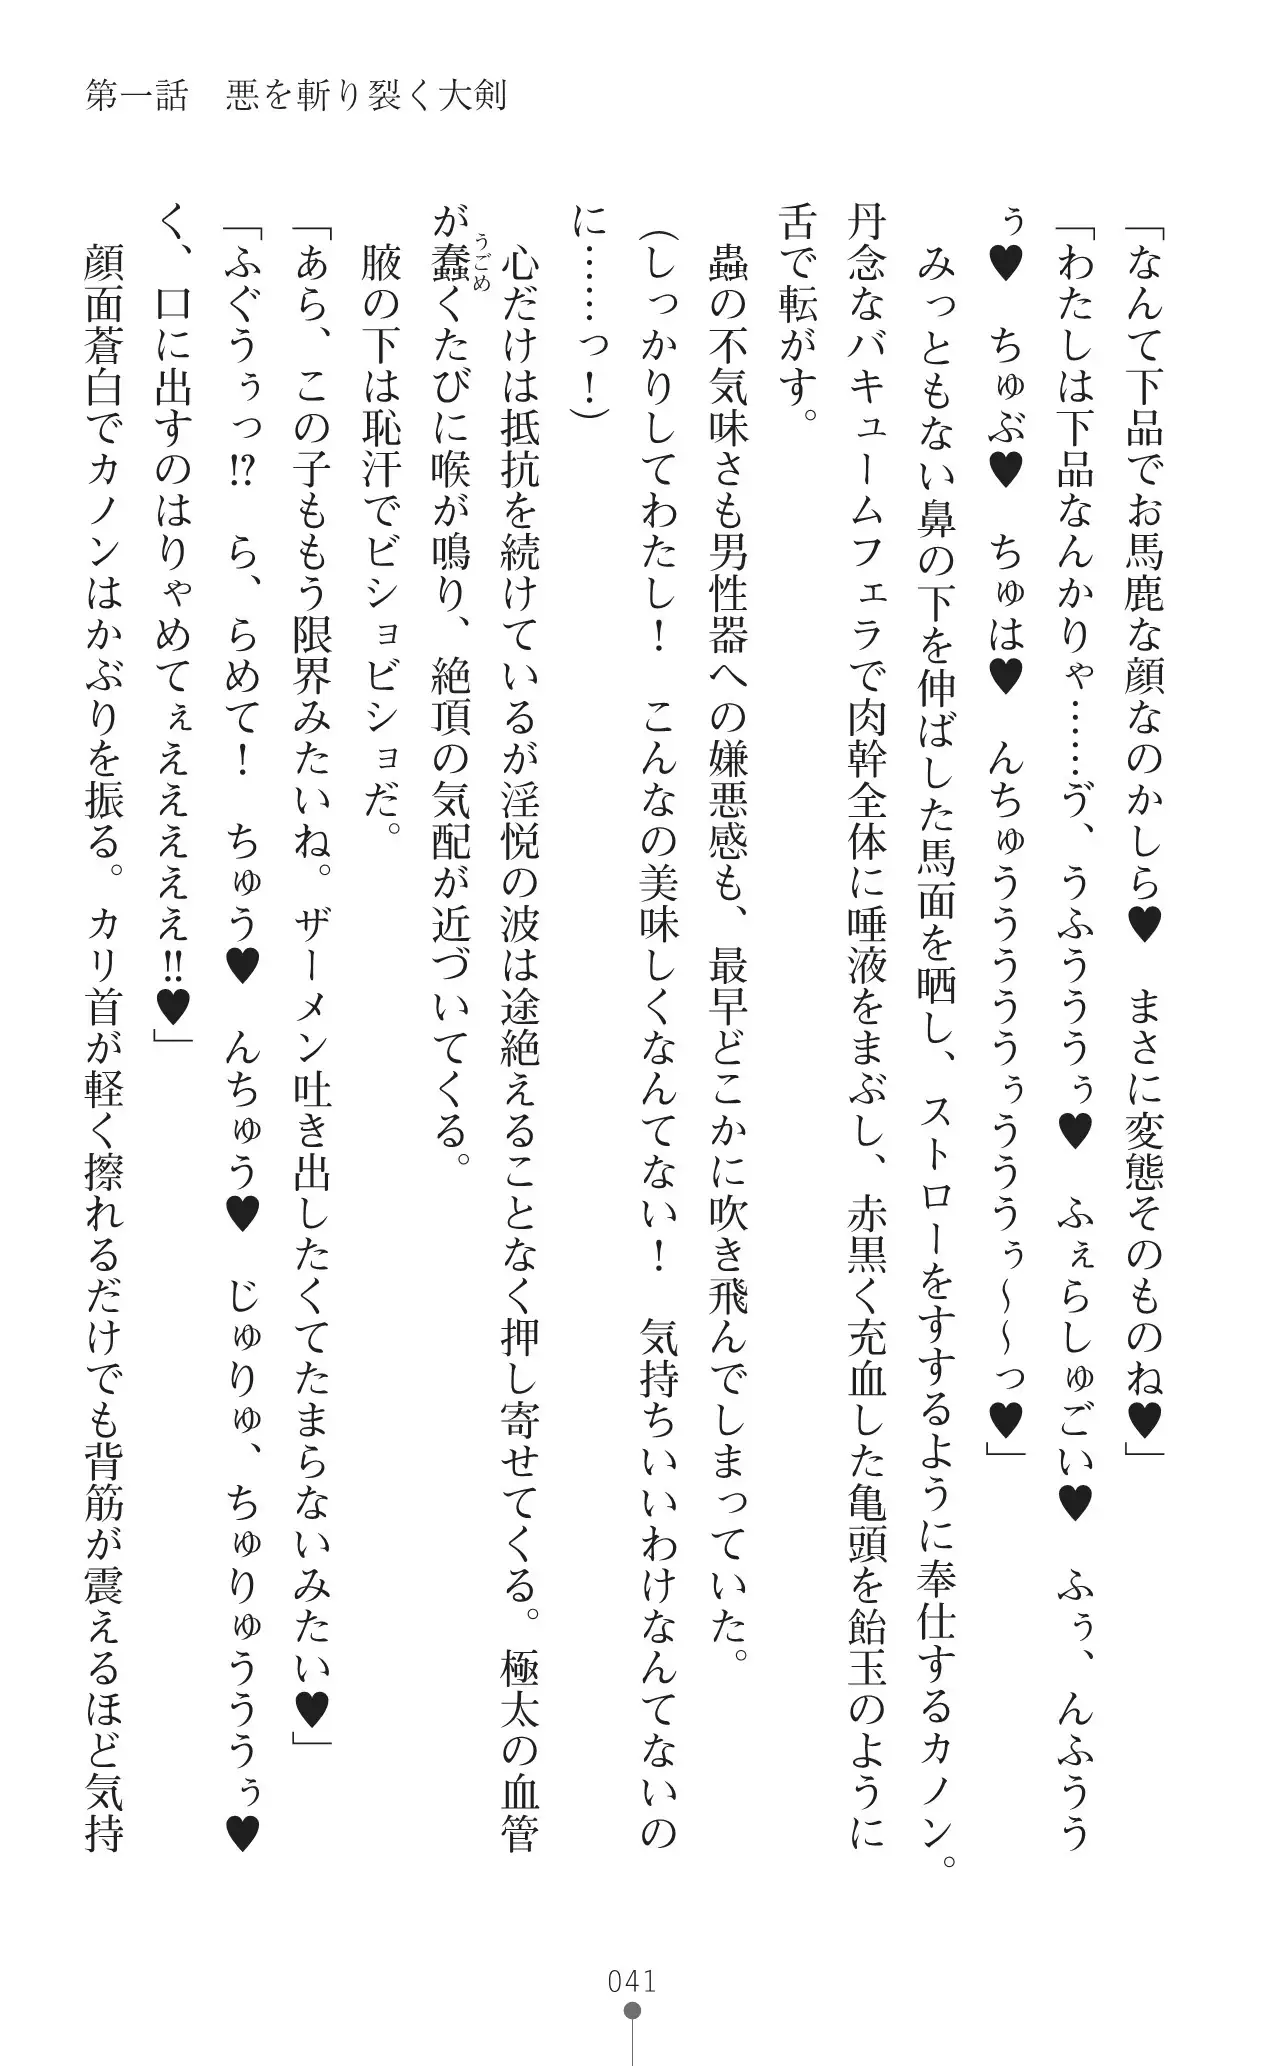 第一話　悪を斬り裂く大剣
「なんて下品でお馬鹿な顔なのかしら♥　まさに変態そのものね♥」
「わたしは下品なんかりゃ……ゔ、うふうううぅ♥　ふぇらしゅごい♥　ふぅ、んふうう
ぅ♥　ちゅぶ♥　ちゅは♥　んちゅうううううぅうううぅ～～っ♥」
　みっともない鼻の下を伸ばした馬面を晒し、ストローをすするように奉仕するカノン。
丹念なバキュームフェラで肉幹全体に唾液をまぶし、赤黒く充血した亀頭を飴玉のように
舌で転がす。
　蟲の不気味さも男性器への嫌悪感も、最早どこかに吹き飛んでしまっていた。
（しっかりしてわたし！　こんなの美味しくなんてない！　気持ちいいわけなんてないの
に……っ！）
　心だけは抵抗を続けているが淫悦の波は途絶えることなく押し寄せてくる。極太の血管
が蠢くたびに喉が鳴り、絶頂の気配が近づいてくる。
うごめ
　腋の下は恥汗でビショビショだ。
「あら、この子ももう限界みたいね。ザーメン吐き出したくてたまらないみたい♥」
「ふぐうぅっ⁉　ら、らめて！　ちゅう♥　んちゅう♥　じゅりゅ、ちゅりゅうううぅ♥
く、口に出すのはりゃめてぇえええええ‼♥」
　顔面蒼白でカノンはかぶりを振る。カリ首が軽く擦れるだけでも背筋が震えるほど気持
041